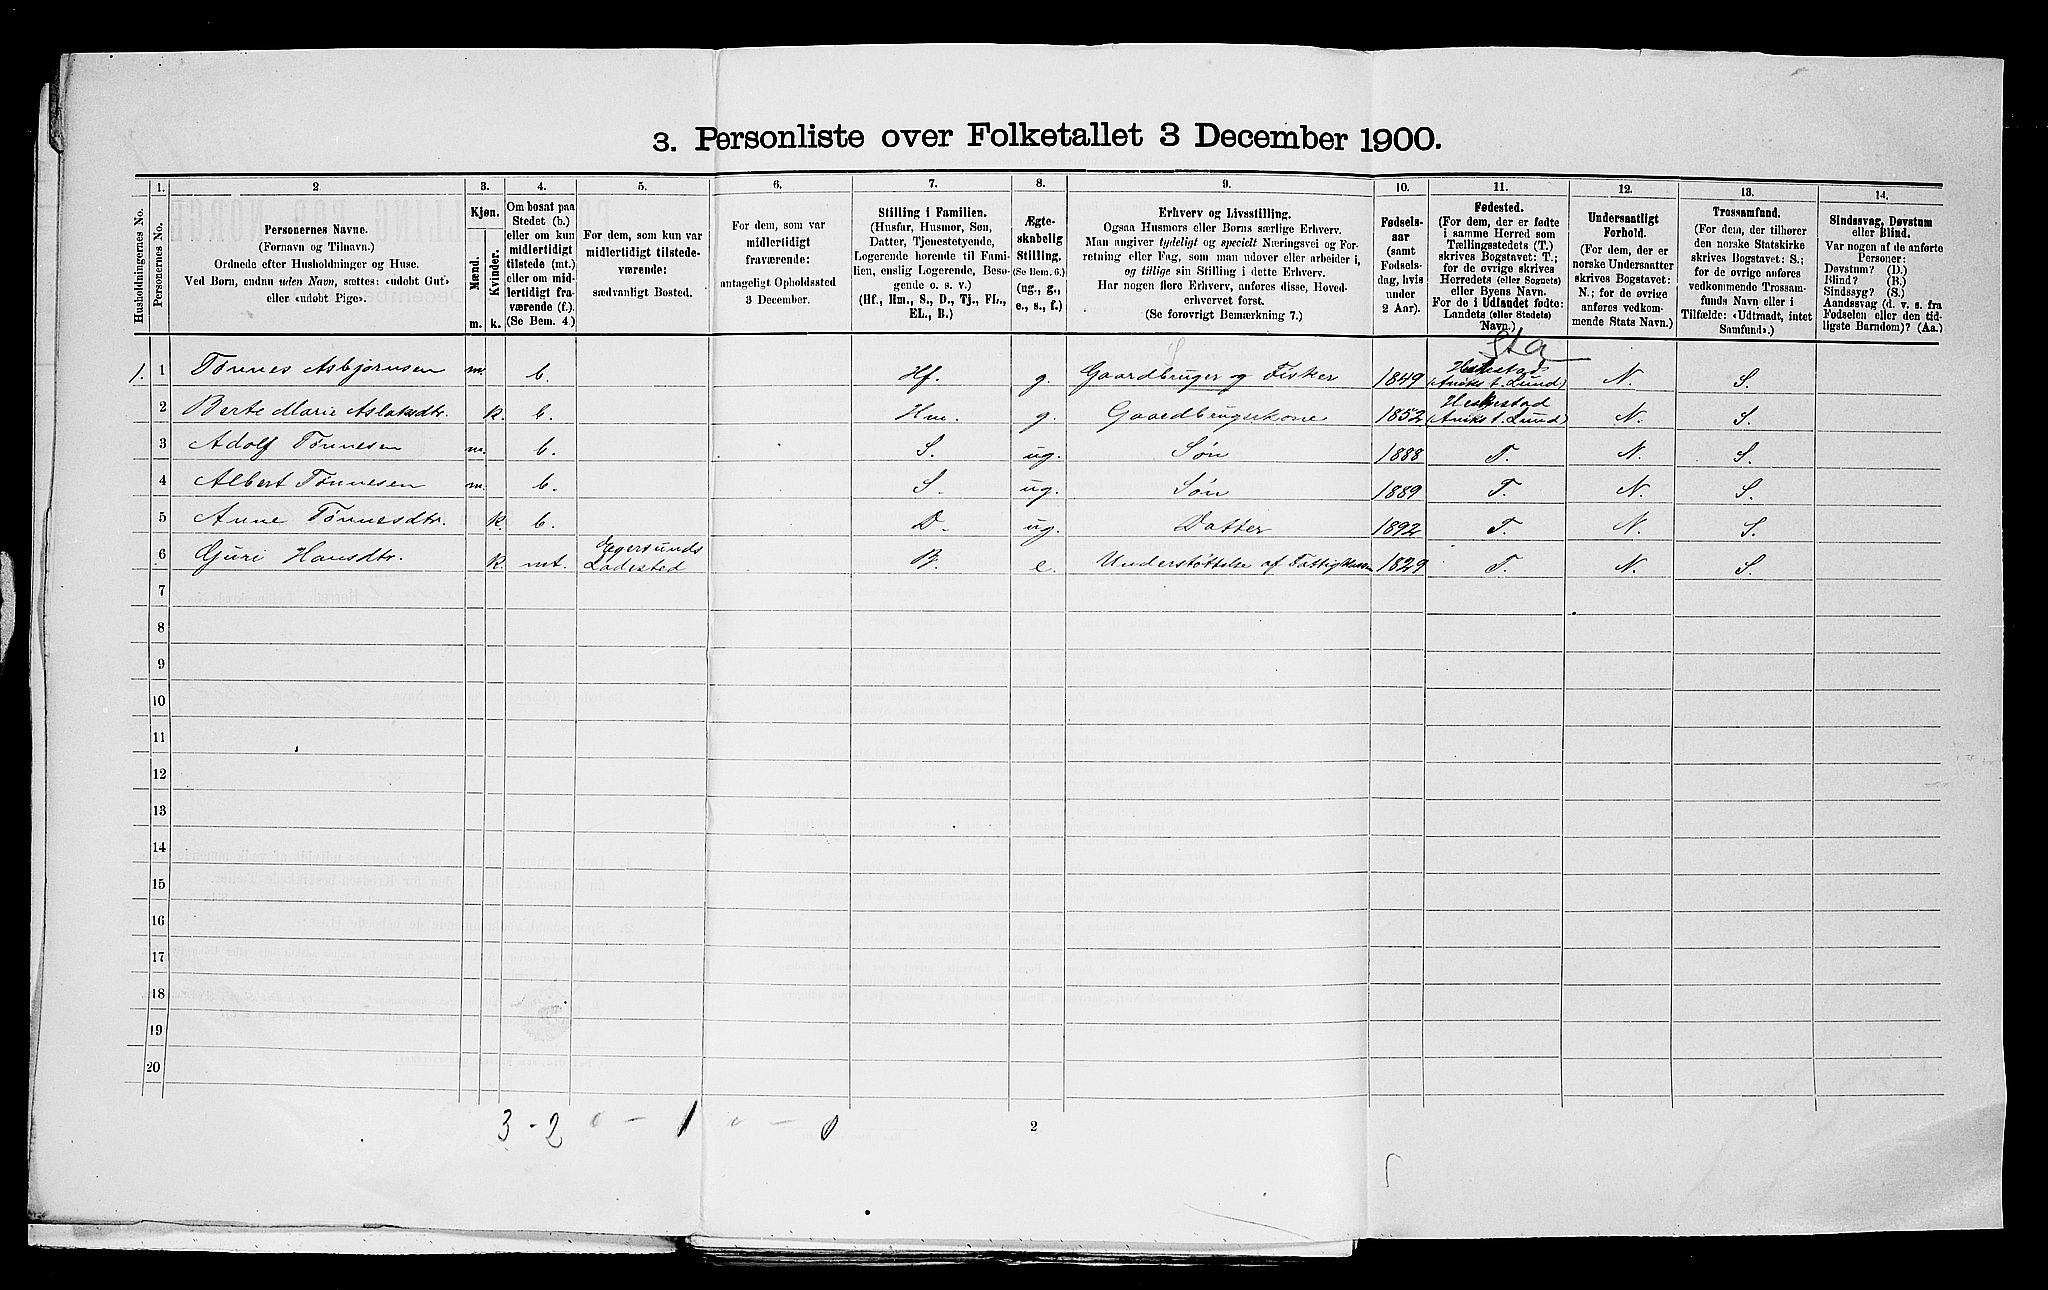 3. Personliste over Folketallet 3 December 1900.
1. 2. 3. 4. 5. 6. 7. 8. 9. 10. 11. 12. 13. 14.
Husholdningernes No.
Personernes No.
Personernes Navne.
(Fornavn og Tilnavn.)
Ordnede efter Husholdninger og Huse.
Ved Børn, endnu uden Navn, sættes: «udøbt Gut»
eller «udøbt Pige».
Kjøn.
Mænd.
Kvinder.
m. k.
Om bosat paa
Stedet (b.)
eller om kun
midlertidigt
tilstede (mt.)
eller om mid-
lertidigt fra-
værende (f.).
(Se Bem. 4.)
For dem, som kun var
midlertidigt tilstede-
værende:
sædvanligt Bosted.
For dem, som var
midlertidigt
fraværende:
antageligt Opholdssted
3 December.
Stilling i Familien.
(Husfar, Husmor, Søn,
Datter, Tjenestetyende,
Logerende hørende til Fami-
lien, enslig Logerende, Besø-
gende o. s. v.)
(Hf., Hm., S., D., Tj., FL.,
EL., B.)
Ægte-
skabelig
Stilling.
(Se Bem. 6.)
(ug., g.,
e., s., f.)
Erhverv og Livsstilling.
Ogsaa Husmors eller Børns særlige Erhverv.
Man angiver tydeligt og specielt Næringsvei og For-
retning eller Fag, som man udover eller arbeider i,
og tillige sin Stilling i dette Erhverv.
Har nogen flere Erhverv, anføres disse, Hoved-
erhvervet først.
(Se forøvrigt Bemærkning 7.)
Fødsels-
aar
(samt
Fødsels-
dag, hvis
under
2 Aar).
Fødested.
(For dem, der er fødte
i samme Herred som
Tællingsstedets (T.)
skrives Bogstavet: T.;
for de øvrige skrives
Herredets (eller Sognets)
eller Byens Navn.
For de i Udlandet fødte:
Landets (eller Stedets)
Navn.)
Undersaatligt
Forhold.
(For dem, der er
norske Undersaatter
skrives Bogstavet:
N.; for de øvrige
anføres vedkom-
mende Stats Navn.)
Trossamfund.
(For dem, der tilhører
den norske Statskirke
skrives Bogstavet: S.;
for de øvrige anføres
vedkommende Trossam-
funds Navn eller i
Tilfælde: «Udtraadt, intet
Samfund».)
Sindssvag, Døvstum
eller Blind.
Var nogen af de anførte
Personer:
Døvstum? (D.)
Blind? (B.)
Sindssyg? (S.)
Aandssvag (d. v. s. fra
Fødselen eller den tid-
ligste Barndom)? (Aa.)
1. 1 Tønnes Asbjørnsen m. b. Hf. g. Gaardbruger og Fisker 1849 Heskestad (Aniks t. Lund) N. S.
2 Berte Marie Aslaksdtr. k. b. Hm. g. Gaardbrugerkone 1852 Heskestad (Aniks t. Lund) N. S.
3 Adolf Tønnesen m. b. S. ug. Søn 1888 T. N. S.
4 Albert Tønnesen m. b. S. ug. Søn 1889 T. N. S.
5 Anne Tønnesdtr. k. b. D. ug. Datter 1892 T. N. S.
6 Guri Hansdtr. k. mt. Egersunds Ladested B. e. Understøttelse af Fattigkassen 1829 T. N. S.
7
8
9
10
11
12
13
14
15
16
17
18
19
20
3 - 2 0 - 1 0 - 0
2